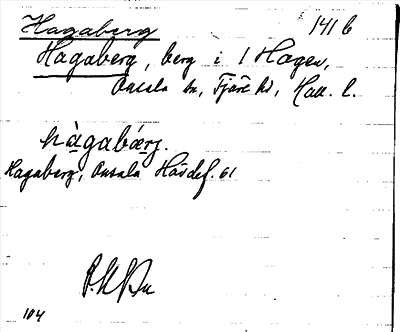 Hagaberg 141 b
Hagaberg, berg i 1 Hagen,
Onsala sn, Fjäre hd, Hall. l.
hàgabárj.
Hagaberg, Onsala Häsdef. 61
104